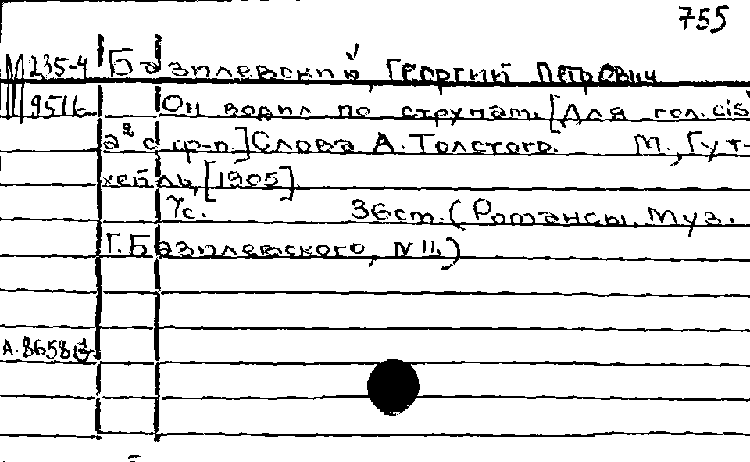 755
М 235-4 Базилевский, Георгий Петрович
Он водил по струнам. [Для гол. cis'-
a² с ф-п.] Слова А. Толстого. М., Гут-
хейль, [1905].
7с. 36ст. (Романсы. Муз.
Г. Базилевского, N 11)